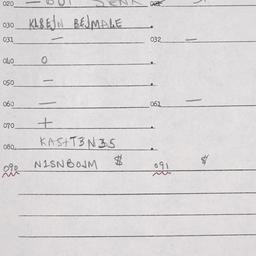 020
030 KLBEJN BEJMALE
031 — 032 —
040 O
050 =
060 — 061 —
070 +
080 KASHT3N3S
090 N2SNBOJM $ 091 $